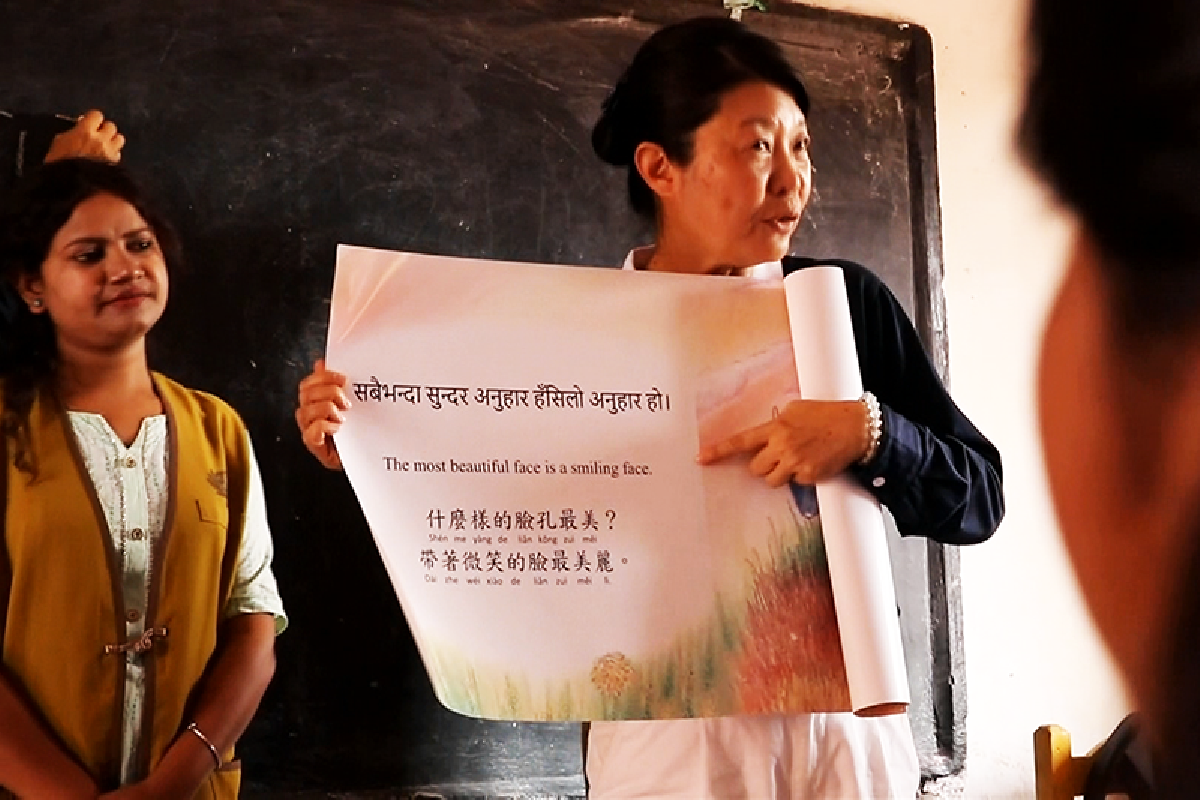 सबैभन्दा सुन्दर अनुहार हँसिलो अनुहार हो।
The most beautiful face is a smiling face.
什麼樣的臉孔最美？
Shén me yàng de liǎn kǒng zuì měi
帶著微笑的臉最美麗。
Dài zhe wéi xiào de liǎn zuì měi lì.